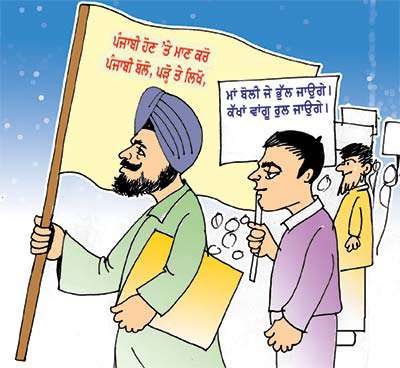 ਪੰਜਾਬੀ ਹੋਣ 'ਤੇ ਮਾਣ ਕਰੋ
ਪੰਜਾਬੀ ਬੋਲੋ, ਪੜ੍ਹੋ ਤੇ ਲਿਖੋ,
ਮਾਂ ਬੋਲੀ ਜੇ ਭੁੱਲ ਜਾਉਗੇ।
ਕੱਖਾਂ ਵਾਂਗੂ ਰੁਲ ਜਾਉਗੇ।